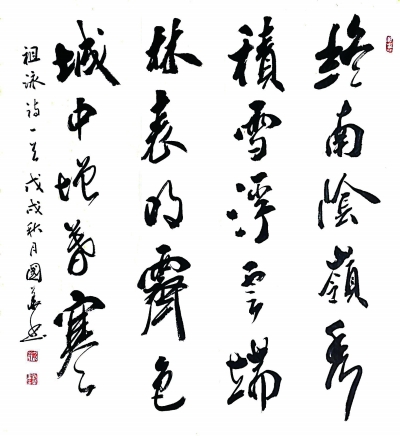 終南陰嶺秀
積雪浮雲端
林表明霽色
城中增暮寒
祖詠詩一首戊戌秋月國華書